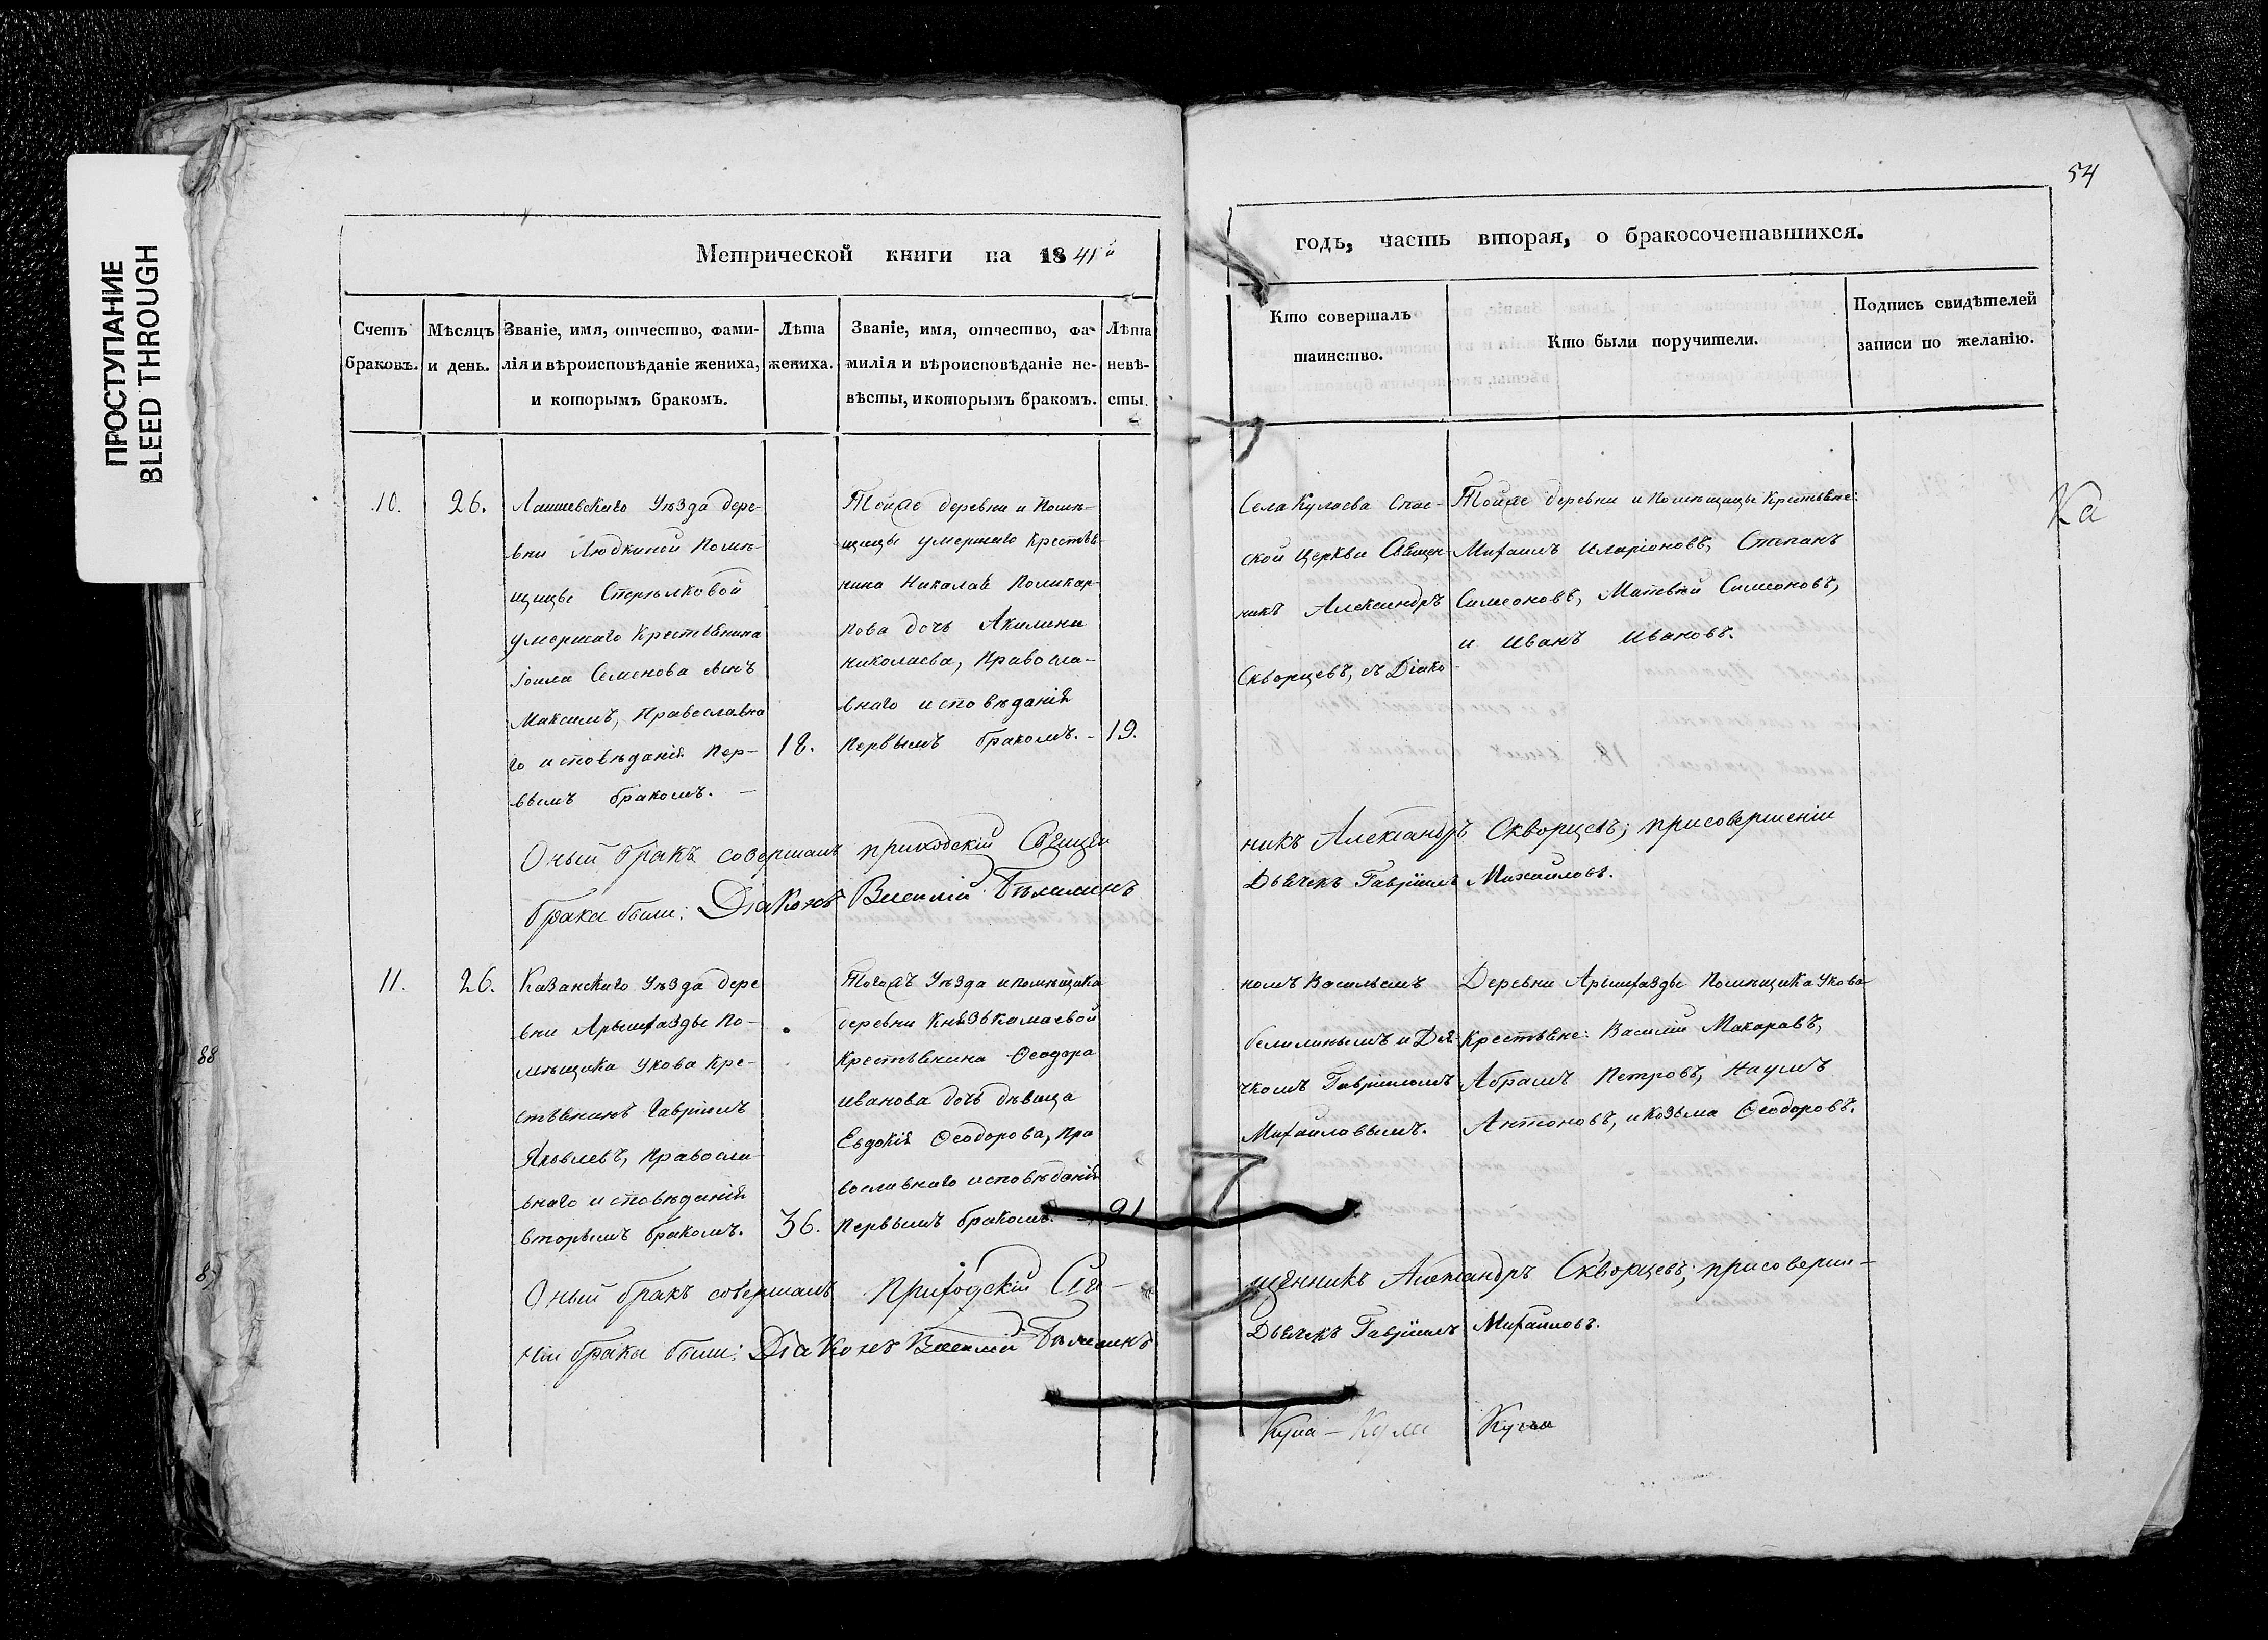 ПРОСТУПАНИЕ
BLEED THROUGH
54
Метрической книги на 1841й
годъ, часть вторая, о бракосочетавшихся.
Счетъ
браковъ.
Мѣсяцъ
и день.
Званіе, имя, отчество, фами-
лія и вѣроисповѣданіе жениха,
и которымъ бракомъ.
Лѣта
жениха.
Званіе, имя, отчество, фа-
милія и вѣроисповѣданіе не-
вѣсты, и которымъ бракомъ.
Лѣта
невѣ-
сты.
Кто совершалъ
таинство.
Кто были поручители.
Подпись свидѣтелей
записи по желанію.
10.
26.
Лаишевскаго Уѣзда дере-
вни Людкиной Помѣ-
щицы Стрѣлковой
умершаго Крестьянина
Іоила Семенова сынъ
Максимъ, Православна
го исповѣданія пер-
вымъ бракомъ. —
18.
Тойже деревни и Помѣ-
щицы умершаго крестья-
нина Николая Поликар-
пова дочь Акилина
Николаева, Правосла-
внаго исповѣданія
первымъ бракомъ. -
19.
Села Кулаева Спас-
ской Церкви Священ-
никъ Александръ
Скворцевъ, съ Діако-
Тойже деревни и Помѣщицы Крестьяне:
Михаилъ Иларіоновъ, Степанъ
Симеоновъ, Матвѣй Симеоновъ,
и Иванъ Ивановъ.
Ка
Оный бракъ совершалъ приходскій Священ
никъ Александръ Скворцевъ; присовершеніи
брака были: Діаконъ Василій Бѣлилинъ
Дьячекъ Гавріилъ Михайловъ.
11.
26.
Казанскаго Уѣзда дере
вни Арышхазды По-
мѣщика Укова Кре-
стьянинъ Гавріилъ
Яковлевъ, Правосла-
внаго исповѣданія
вторымъ бракомъ.
36.
Тогожъ Уѣзда и помѣщика
деревни Князь Камаевой
Крестьянина Ѳеодора
Иванова дочь дѣвица
Евдокія Ѳеодорова, Пра
вославнаго исповѣданія
первымъ бракомъ. -
21
номъ Васильемъ
белилинымъ и Дья-
чкомъ Гавріиломъ
Михайловымъ.
Деревни Арышхазды Помѣщика Укова
Крестьяне: Василій Макаровъ,
Абрамъ Петровъ, Наумъ
Антоновъ, и Козьма Ѳеодоровъ.
Оный бракъ совершалъ Приходскій Свя-
щенникъ Александръ Скворцевъ; присоверше-
ніи брака были: Діаконъ Василій Бѣлилинъ
Дьячекъ Гавріилъ Михайловъ.
88